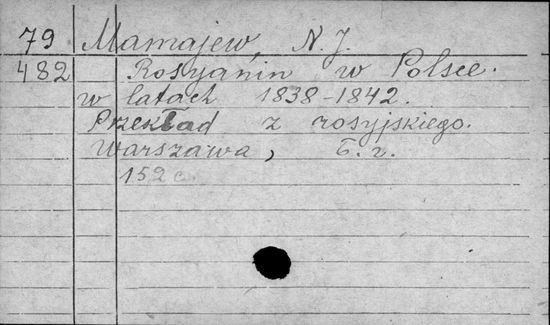 79 Mamajew, N. J.
482 Rosyanin w Polsce.
w latach 1838-1842.
Przekład z rosyjskiego.
Warszawa, b. r.
152 c.